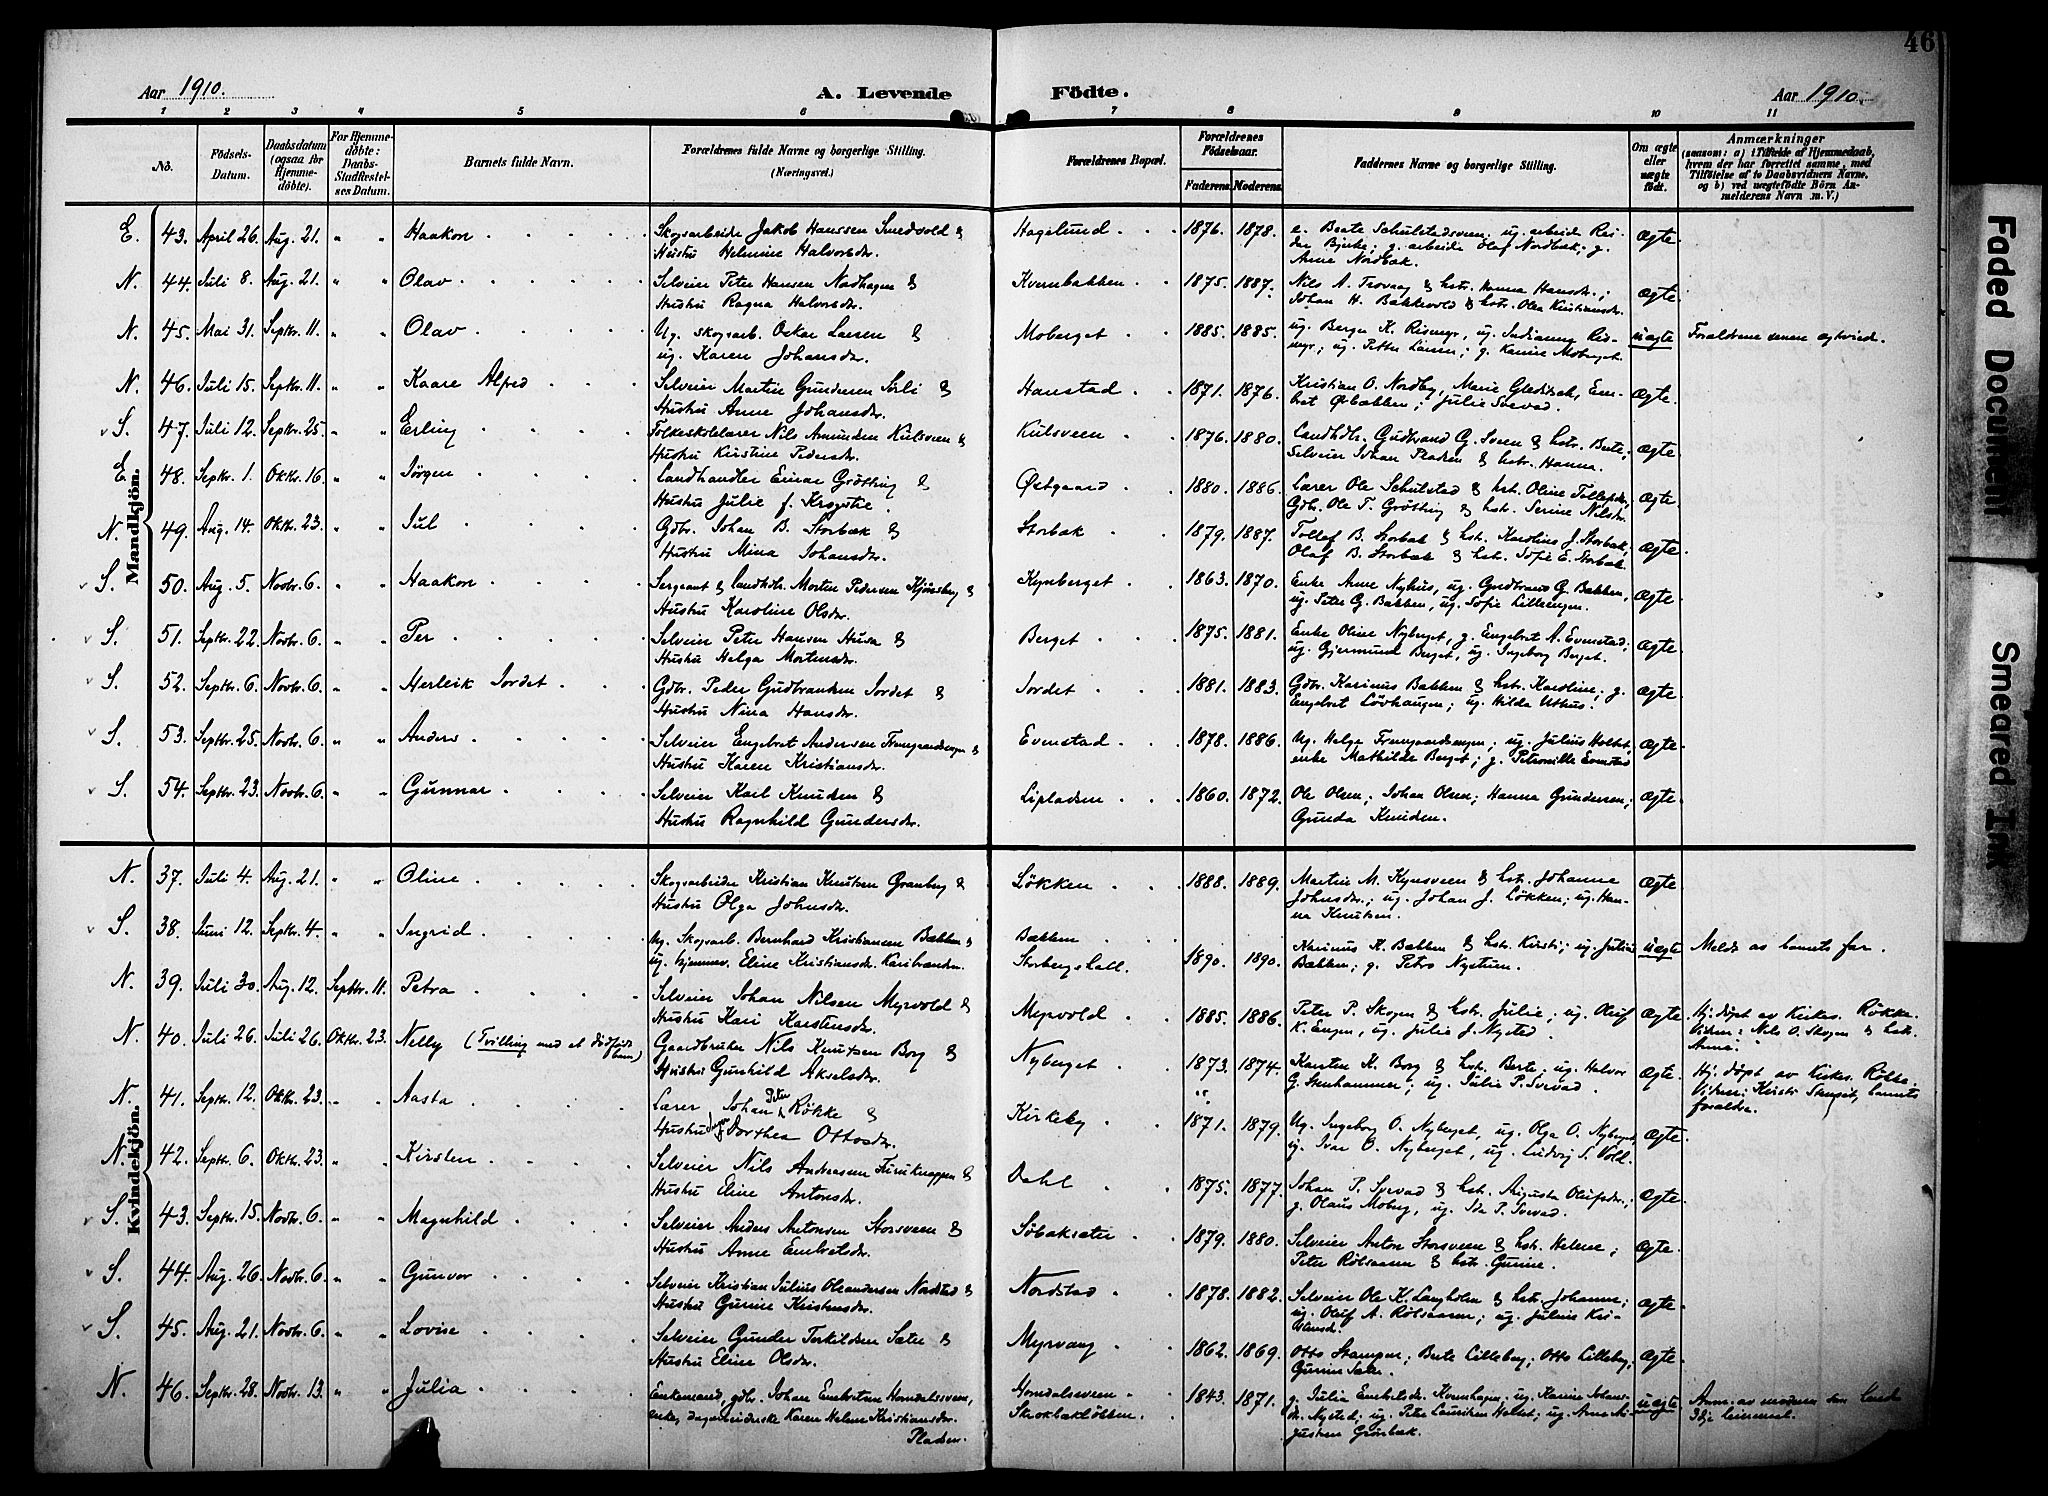 46
Aar 1910.
A. Levende Födte.
Aar 1910.
1 2 3 4 5 6 7 8 9 10 11
No. Födsels-Datum. Daabsdatum (ogsaa for Hjemmedöbte). For Hjemmedöbte: Daabs-Stadfæstelses Datum. Barnets fulde Navn. Forældrenes fulde Navne og borgerlige Stilling. (Næringsvei.) Forældrenes Bopæl. Forældrenes Födselsaar. Faderens. Moderens. Faddernes Navne og borgerlige Stilling. Om ægte eller uægte födt. Anmærkninger (saasom: a) i Tilfælde af Hjemmedaab, hvem der har forrettet samme, med Tilföielse af to Daabsvidners Navne, og b) ved uægtefödte Börn Anmelderens Navn m. V.)
Mandkjön.
E. 43. April 26. Aug. 21. " " Haakon Skogsarbeider Jakob Hanssen Smedvold & Hustru Helmine Halvorsdr. Hagelund 1876. 1878. e. Beate Schulstadsveen, ug. arbeider Reidar Bjerke; g. arbeider Olaf Nordbæk; g. Anne Nordbæk. Ægte.
N. 44. Juli 8. Aug. 21. " " Olav Selveier Peter Hansen Nadhagen & Hustru Ragna Halvorsdr. Kvernbakken 1875. 1887. Nils A. Trovaag & hstr. Hanna Hansdr.; Johan H. Bakkevold & hstr. Olea Kristiansdr. Ægte.
N. 45. Mai 31. Septbr. 11. " " Olav Ug. skogsarb. Oskar Larsen & ug. Karen Johansdr. Moberget 1885. 1885. ug. Berger K. Rismyr, ug. Indianna Rismyr; ug. Petter Larsen; g. Karine Moberget. uægte Forældrene senere egteviede.
N. 46. Juli 15. Septbr. 11. " " Kaare Alfred Selveier Martin Gundersen Sorli & Hustru Anne Johansdr. Hanstad 1871. 1876. Kristian O. Nordby, Marie Gleditsch, Embret Øsbækken; Julie Svevad. Ægte.
S. 47. Juli 12. Septbr. 25. " " Erling Folkeskolelærer Nils Amundsen Kulsveen & Hustru Kirstine Pedersdr. Kulsveen 1876. 1880. Landhdlr. Gudbrand G. Sveen & hstr. Berte; Selveier Johan Pladsen & hstr. Hanna. Ægte.
E. 48. Septbr. 1. Oktbr. 16. " " Jørgen Landhandler Einar Grøtting & Hustru Julie f. Krogstie. Østgaard 1880. 1886. Lærer Ole Schulstad & hst. Oline Tollefsdr.; Gdbr. Ole T. Grøtting & hstr. Serine Nilsdr. Ægte.
N. 49. Aug. 14. Oktbr. 23. " " Jul Gdbr. Johan B. Storbæk & Hustru Mina Johansdr. Storbæk 1879. 1887. Tollef B. Storbæk & hstr. Karoline J. Storbæk, Olaf B. Storbæk & hst. Sofie E. Storbæk. Ægte.
S. 50. Aug. 5. Novbr. 6. " " Haakon Sergeant & landhdlr. Morten Pedersen Kjønsberg & Hustru Karoline Olsdr. Kynberget 1863. 1870. Enke Anne Nyhus, ug. Gudbrand G. Bakken, ug. Peter G. Bakken, ug. Sofie Lilleengen. Ægte.
S. 51. Septbr. 22. Novbr. 6. " " Per Selveier Peter Hansen Husa & Hustru Helga Mortensdr. Berget 1875. 1881. Enke Oline Nyberget, g. Engebret A. Evenstad; ug. Gjermund Berget, ug. Ingeborg Berget. Ægte.
S. 52. Septbr. 6. Novbr. 6. " " Herleik Jordet Gdbr. Peder Gudbrandsen Jordet & Hustru Nina Hansdr. Jordet 1881. 1883. Gdbr. Karinus Bakken & hstr. Karoline; g. Engebret Løvhaugen; ug. Hilda Uthus. Ægte.
S. 53. Septbr. 25. Novbr. 6. " " Anders Selveier Engebret Andersen Framgaardsengen & Hustru Karen Kristiansdr. Evenstad 1878. 1886. Ug. Helge Framgaardsengen; ug. Julius Holtet, enke Mathilde Berget; g. Petronille Evenstad Ægte.
S. 54. Septbr. 23. Novbr. 6. " " Gunnar Selveier Karl Knudsen & Hustru Ragnhild Gundersdr. Lipladsen 1860. 1872. Ole Olsen; Johan Olsen; Hanna Gundersen; Gunda Knudsen. Ægte.
Kvindekjön.
N. 37. Juli 4. Aug. 21. " " Oline Skogsarbeider Kristian Knutsen Granberg & Hustru Olga Johnsdr. Løkken 1888. 1889. Martin M. Kynsveen & hst. Johanne Johnsdr.; ug. Johan J. Løkken; ug. Hanna Knutsen. Ægte.
S. 38. Juni 12. Septbr. 4. " " Ingrid Ug. Skogsarb. Bernhard Kristiansen Bækken & ug. hjemmev. Eline Kristiansdr. Karibranden. Bækken Storbergshall. 1890. 1890. Karinus K. Bækken & hst. Kirsti; ug. Julius Bækken; g. Petra Nystuen. uægte Meldt av barnets far.
N. 39. Juli 30. Aug. 12. Septbr. 11. Petra Selveier Johan Nilsen Myrvold & Hustru Kari Karstensdr. Myrvold 1885. 1886. Peter P. Skogen & hst. Julie; ug. Oluf K. Engen, ug. Julie J. Nysted. Ægte. Hj. døpt av Kirkes. Røkke. Vidner: Nils O. Skogen & hstr. Anne.
N. 40. Juli 26. Juli 26. Oktbr. 23. Nelly (Tvilling med et dødfødt barn) Gaardbruker Nils Knutsen Borg & Hustru Gunhild Akselsdr. Nyberget 1873. 1874. Karsten K. Borg & hst. Berte; ug. Halvor G. Stenhammer; ug. Julie P. Svevad. Ægte. Hj. døpt av Kirkes. Røkke. Vidner: Kirsti Stenset, barnets forældre.
N. 41. Septbr. 12. Oktbr. 23. " " Aasta Lærer Johan Peter Røkke & Hustru Dorthea Ottosdr. Kirkeby 1871. 1879. Ug. Ingeborg O. Nyberget, ug. Olga O. Nyberget, ug. Ivar O. Nyberget, ug. Ludvig S. Vold. Ægte.
N. 42. Septbr. 6. Oktbr. 23. " " Kirsten Selveier Nils Andreasen Furuknappen & Hustru Eline Antonsdr. Dahl 1875. 1877. Johan P. Svevad & hst. Augusta Olufsdr.; g. Olaus Moberg, ug. Ida P. Svevad. Ægte.
S. 43. Septbr. 15. Novbr. 6. " " Magnhild Selveier Anders Antonsen Storsveen & Hustru Anne Embretsdr. Søbaksæter 1879. 1880. Selveier Anton Storsveen & hst. Helene; Peter Rølsaasen & hstr. Gunine. Ægte.
S. 44. Aug. 26. Novbr. 6. " " Gunvor Selveier Kristian Julius Oleandersen Nordstad & Hustru Gunine Kristensdr. Nordstad 1878. 1882. Selveier Ole K. Langholen & hst. Johanne; ug. Oluf A. Rølsaasen; ug. Juline Kristiansdr. Ægte.
S. 45. Aug. 21. Novbr. 6. " " Lovise Selveier Gunder Terkildsen Sæter & Hustru Eline Olsdr. Myrvang 1862. 1869. Otto Stampen; Berte Lilleberg; Otto Lilleberg; Gunine Sæter. Ægte.
N. 46. Septbr. 28. Novbr. 13. " " Julia Enkemand, gdbr. Johan Embretsen Homdalsveen, enke, dagarbeiderske Karen Helene Kristiansdr. Pladsen. Homdalsveen Skrokbækløbben. 1843. 1871. g. Julia Embretsdr. Kvernhagen, ug. Karine Johansdr. Nysted; ug. Peter Lauritsen Holtet; ug. Arne August Grønbæk. uægte
Faded Document
Smeared Ink